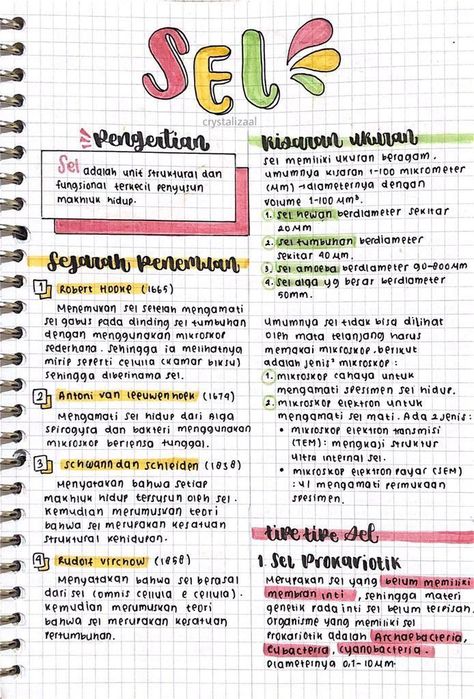 SEL
crystalizaal
Pengertian
Sel adalah unit struktural dan
fungsional terkecil penyusun
makhluk hidup.
Sejarah Penemuan
1 Robert Hooke (1665)
Menemukan sel setelah mengamati
sel gabus pada dinding sel tumbuhan
dengan menggunakan mikroskop
sederhana. Sehingga ia melihatnya
mirip seperti cellula (kamar biksu)
sehingga diberinama sel.
2 Antoni van leeuwenhoek (1674)
Mengamati sel hidup dari alga
spirogyra dan bakteri menggunakan
mikroskop berlensa tunggal.
3 Schwann dan Schleiden (1838)
Menyatakan bahwa setiap
makhluk hidup tersusun oleh sel.
Kemudian merumuskan teori
bahwa sel merupakan kesatuan
struktural kehidupan.
4 Rudolf Virchow (1858)
Menyatakan bahwa sel berasal
dari sel (omnis cellula e cellula).
Kemudian merumuskan teori
bahwa sel merupakan kesatuan
pertumbuhan.
Kisaran ukuran
Sel memiliki ukuran beragam.
umumnya kisaran 1-100 mikrometer
(μm) → diameternya dengan
volume 1-100 μm³.
1. sel hewan berdiameter sekitar
20 μm
2. sel tumbuhan berdiameter
sekitar 40 μm.
3. sel amoeba berdiameter 90-800μm
4. sel alga yg besar berdiameter
50mm.
Umumnya sel tidak bisa dilihat
oleh mata telanjang harus
memakai mikroskop, berikut
adalah jenis² mikroskop :
1. mikroskop cahaya untuk
mengamati spesimen sel hidup.
2. mikroskop elektron untuk
mengamati sel mati. Ada 2 jenis :
• mikroskop elektron transmisi
(TEM) : mengkaji struktur
ultra internal sel.
• mikroskop elektron payar (SEM)
: u/ mengamati permukaan
spesimen.
tipe tipe Sel
1. Sel Prokariotik
Merupakan sel yang belum memiliki
membran inti, sehingga materi
genetik pada inti sel belum terpisah.
organisme yang memiliki sel
prokariotik adalah Archaebacteria,
Eubacteria, cyanobacteria.
Diameternya 0,1-10μm